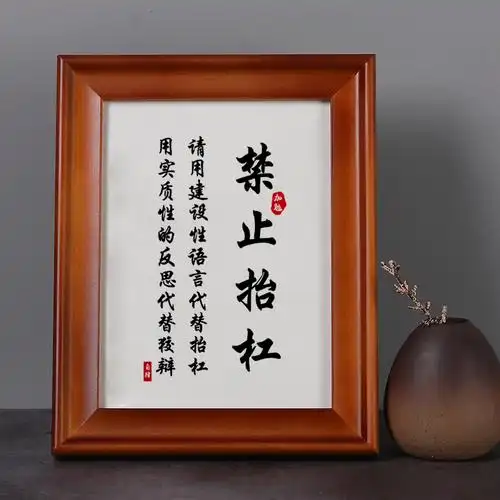 禁止抬杠
请用建设性语言代替抬杠
用实质性的反思代替狡辩